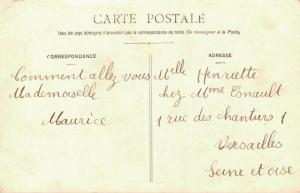 CARTE POSTALE
Tous les pays étrangers n'acceptent pas la correspondance au recto (Se renseigner à la Poste).
CORRESPONDANCE
Comment allez vous
Mademoiselle
Maurice
ADRESSE
Melle Henriette
chez Mme Esnault
1 rue des chantiers 1
Versailles
Seine et oise